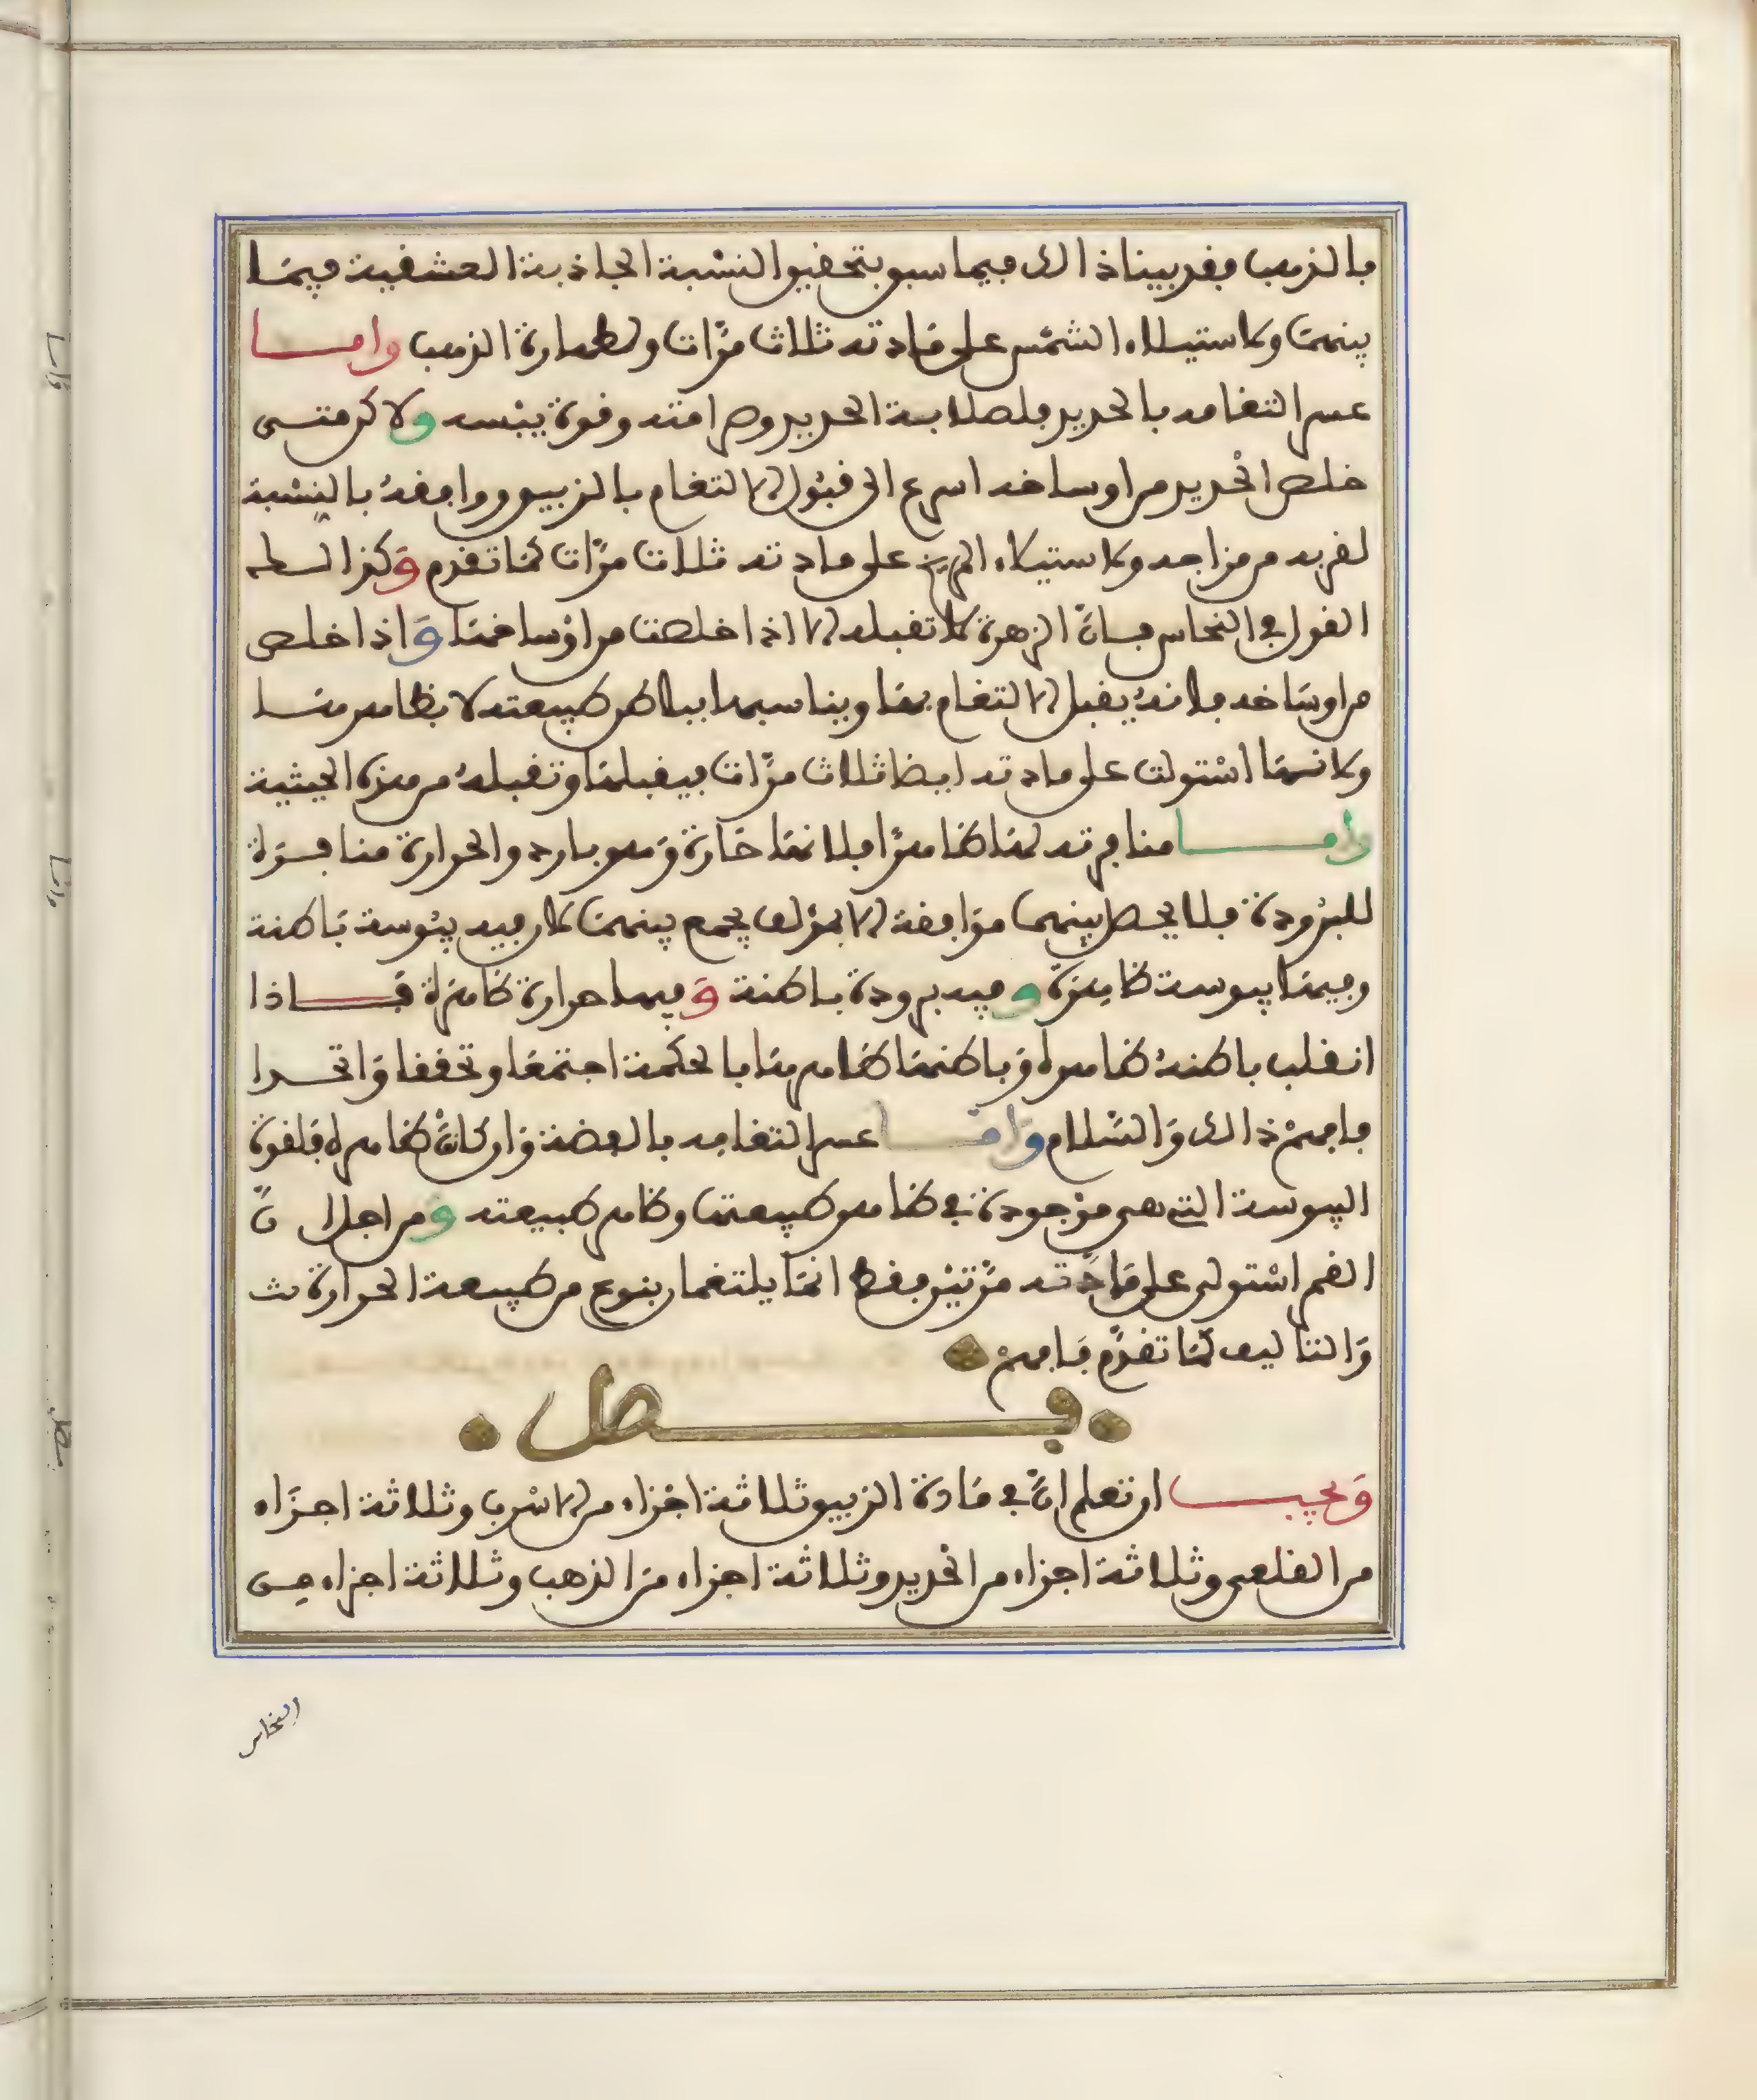 بالذهب فقد بينا ذالك فيما سبق بتحقيق النسبة الجاذبة العشقية فيما
بينهما ولاستيلاء الشمس على مادته ثلاث مرات ولطهارة الذهب واما
عسر التغامه بالحديد فلصلابة الحديد وصرامته وقوة يبسه ولاكن متى
خلص الحديد من اوساخه اسرع الى قبول الالتغام بالزيبق ووافقه بالنسبة
لقربه من مزاجه ولاستيلاء المريخ على مادته ثلاث مرات كما تقدم وكذالك
القول في النحاس فان الزهرة لا تقبله الا اذا خلصت من اوساخها واذا خلص
من اوساخه فلانه يقبل الالتغام بها ويناسبها بباطن طبيعته لا بظاهرها
ولانها استولت على مادته ايضا ثلاث مرات فيقبلها وتقبله من هذه الحيثية
واما منافرته لها ظاهرا فلانها حارة وهو بارد والحرارة منافرة
للبرودة فلا يحصل بينهما موافقة الا بمؤلف يجمع بينهما لان فيه يبوسة باطنة
وفيها يبوسة ظاهرة وفيه برودة باطنة وفيها حرارة ظاهرة فاذا
انقلب باطنه ظاهره وباطنها ظاهرها بالحكمة اجتمعا وتحققا واتحدا
فافهم ذالك والسلام واما عسر التغامه بالفضة وان كان ظاهره فلقوة
اليبوسة التي هي موجودة في ظاهر طبيعتها وظاهر طبيعته ومن اجل ان
القمر استولى على مادته مرتين فقط انما يلتغمان بنوع من طبيعة الحرارة
والتاليف كما تقدم فافهم
فصل
ويجب ان تعلم ان في مادة الزيبق ثلاثة اجزاء من الاسرب وثلاثة اجزاء
من القلعي وثلاثة اجزاء من الحديد وثلاثة اجزاء من الذهب وثلاثة اجزاء من
النحاس